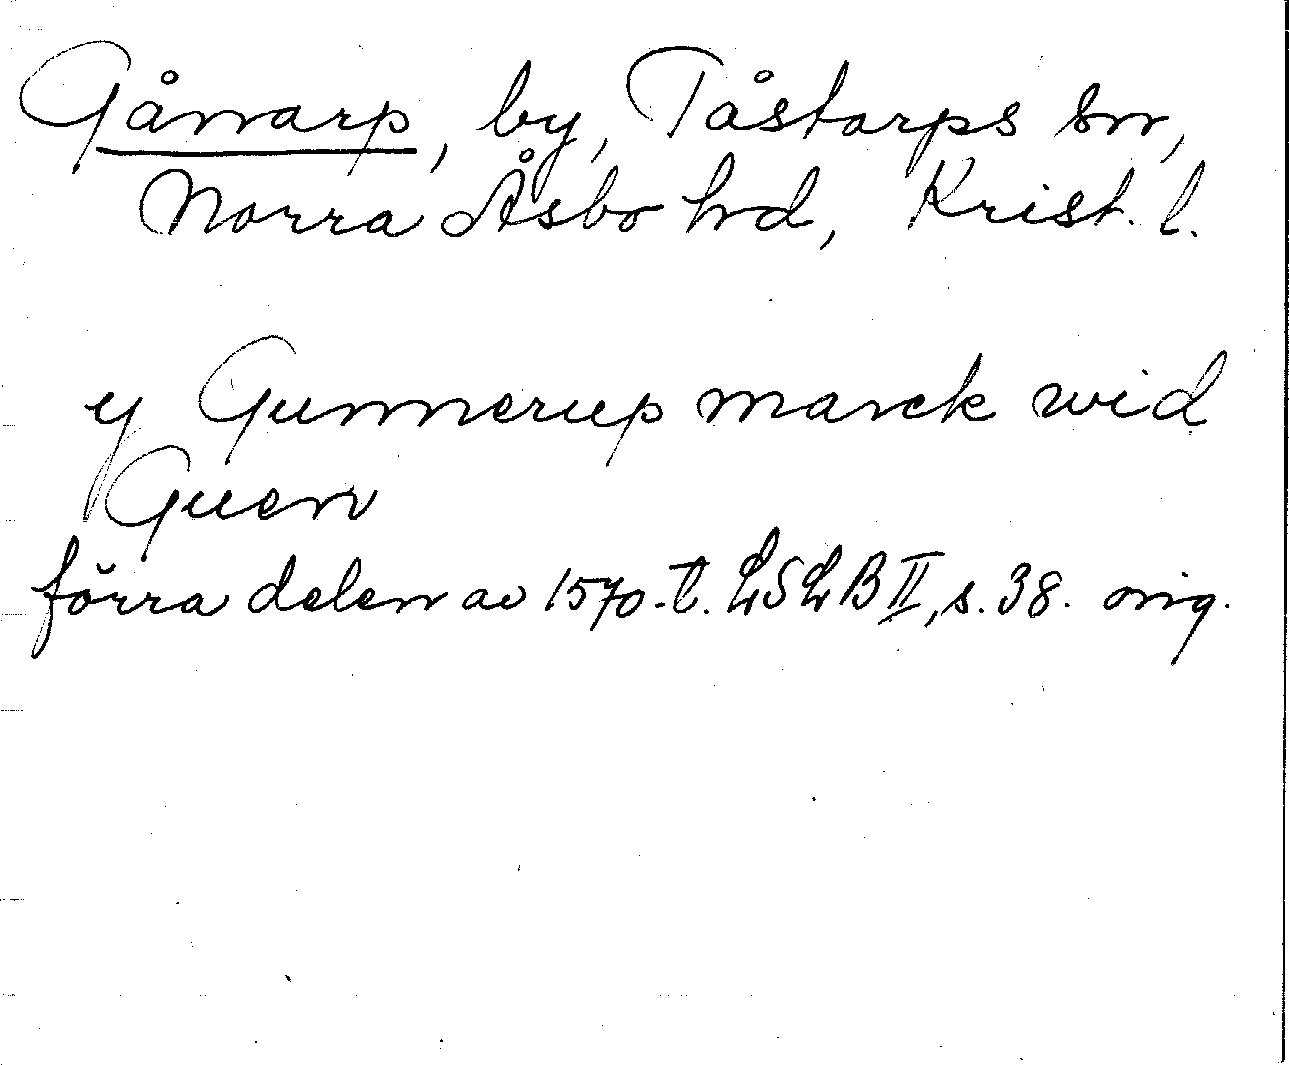 Gånarp, by, Tåstarps sn,
Norra Åsbo hd, Krist. l.
y Gunnerup marck wid
Guen
förra delen av 1570-t. LSLB II, s. 38. orig.